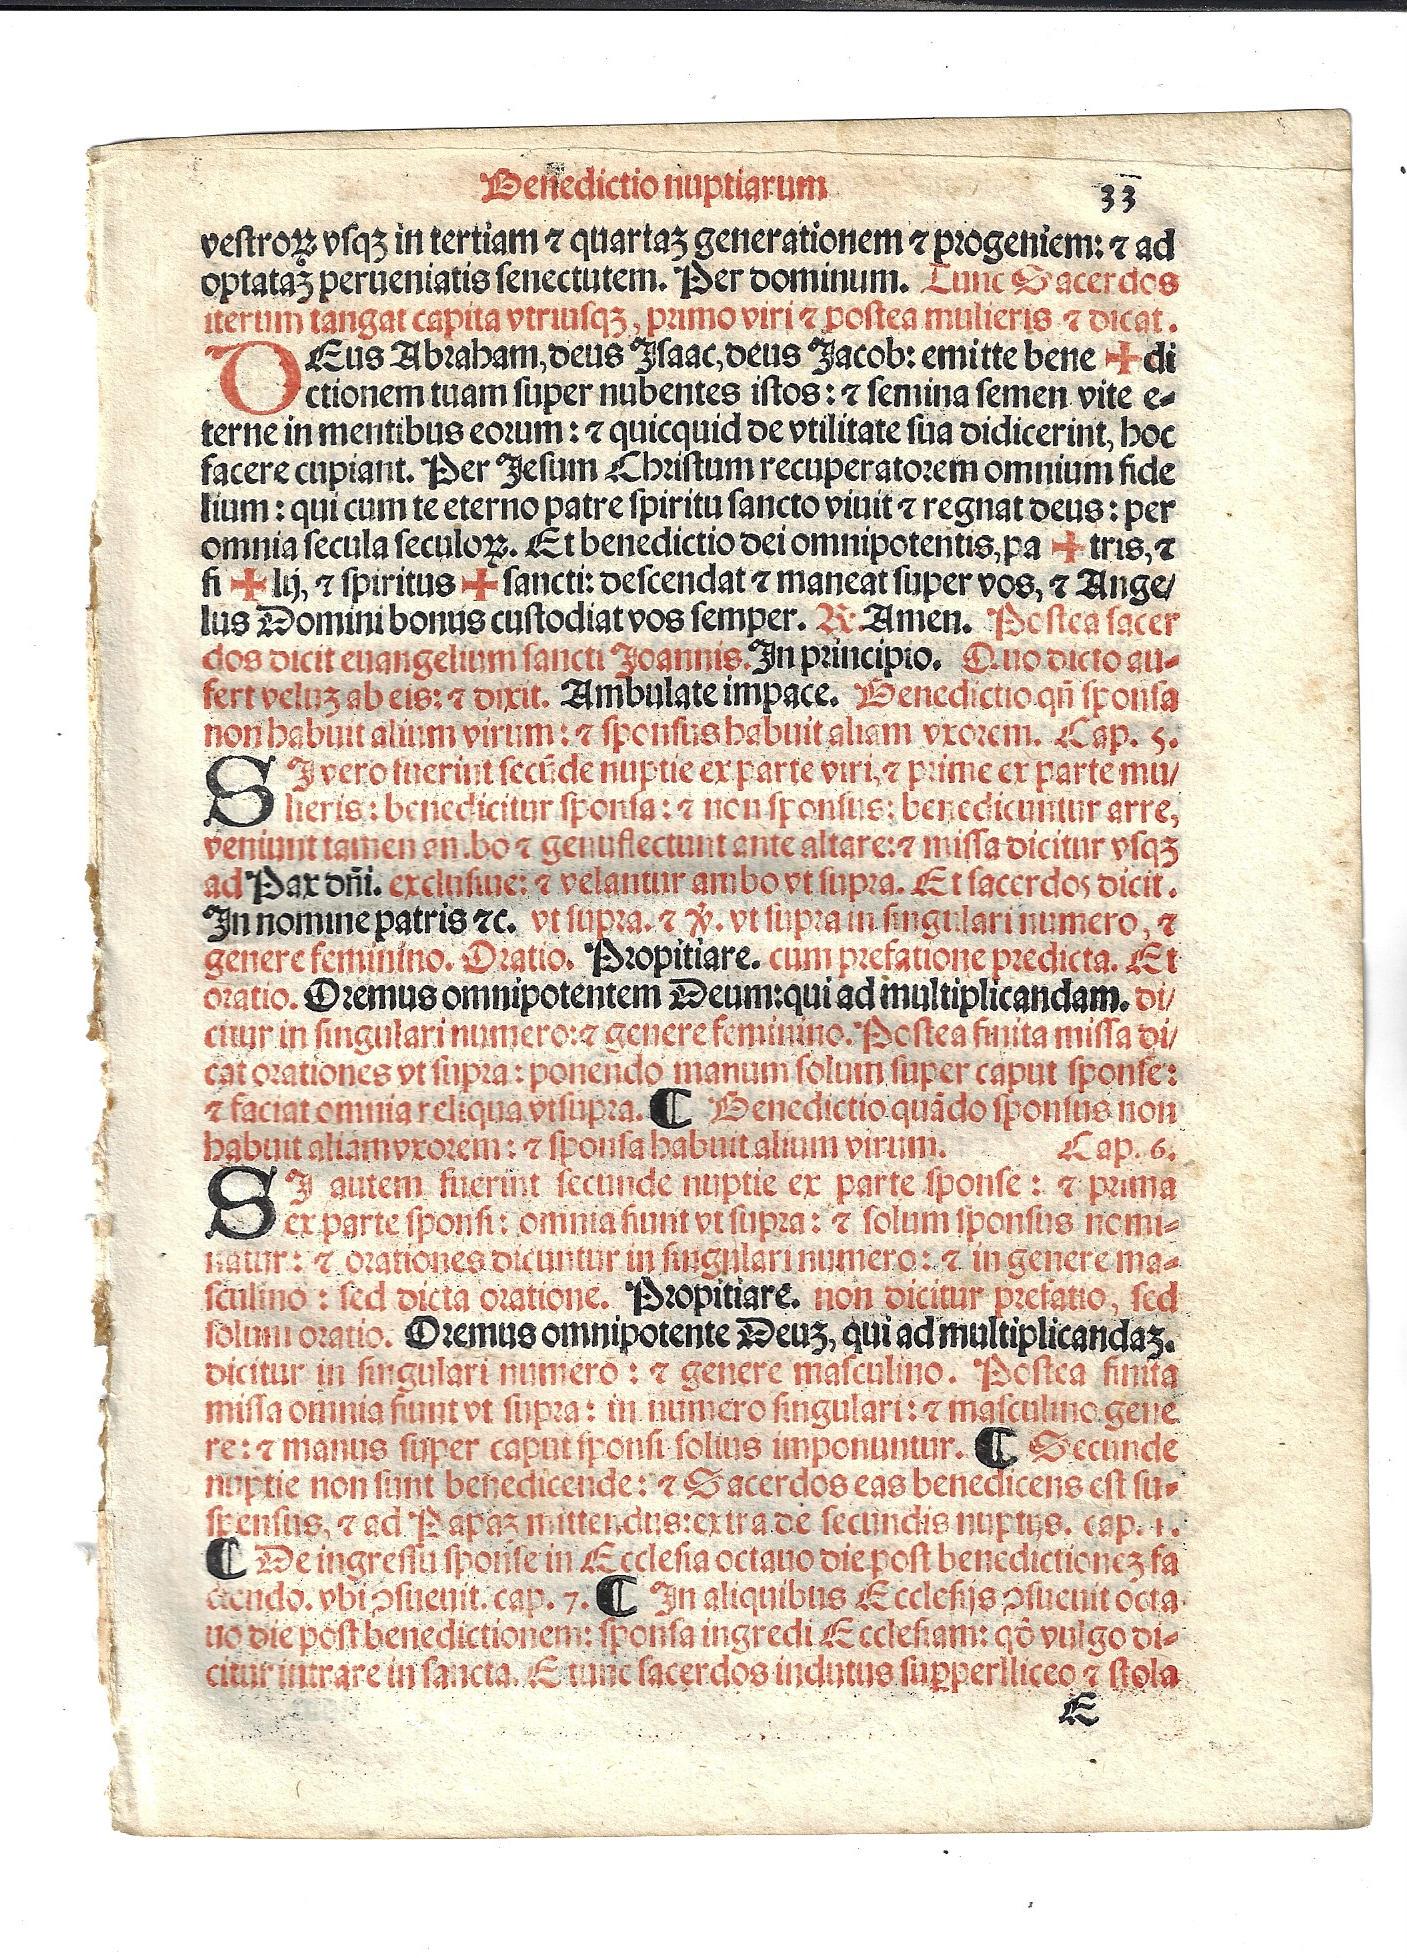 Benedictio nuptiarum 33
vestroꝝ vsqꝫ in tertiam ⁊ quartaꝫ generationem ⁊ progeniem: ⁊ ad
optataꝫ perueniatis senectutem. Per dominum. Tunc Sacerdos
iterum tangat capita vtriusqꝫ, primo viri ⁊ postea mulieris ⁊ dicat.
DEus Abraham, deus Isaac, deus Jacob: emitte bene ✚ di
ctionem tuam super nubentes istos: ⁊ semina semen vite e-
terne in mentibus eorum: ⁊ quicquid de vtilitate sua didicerint, hoc
facere cupiant. Per Jesum Christum recuperatorem omnium fide
lium: qui cum te eterno patre spiritu sancto viuit ⁊ regnat deus: per
omnia secula seculoꝝ. Et benedictio dei omnipotentis, pa ✚ tris, ⁊
fi ✚ lij, ⁊ spiritus ✚ sancti: descendat ⁊ maneat super vos, ⁊ Ange/
lus Domini bonus custodiat vos semper. ℟. Amen. Postea sacer
dos dicit euangelium sancti Joannis. In principio. Quo dicto au-
fert veluꝫ ab eis: ⁊ dixit. Ambulate impace. Benedictio qñ sponsa
non habuit alium virum: ⁊ sponsus habuit aliam vxorem. Cap. 5.
SI vero fuerint secūde nuptie ex parte viri, ⁊ prime ex parte mu/
lieris: benedicitur sponsa: ⁊ non sponsus: benedicuntur arre,
veniunt tamen ambo ⁊ genuflectunt ante altare: ⁊ missa dicitur vsqꝫ
ad Pax dñi. exclusiue: ⁊ velantur ambo vt supra. Et sacerdos dicit.
In nomine patris ⁊c. vt supra. ⁊ ℣. vt supra in singulari numero, ⁊
genere feminino. Oratio. Propitiare. cum prefatione predicta. Et
oratio. Oremus omnipotentem Deum: qui ad multiplicandam. di/
citur in singulari numero: ⁊ genere feminino. Postea finita missa di/
cat orationes vt supra: ponendo manum solum super caput sponse:
⁊ faciat omnia reliqua vt supra. ¶ Benedictio quādo sponsus non
habuit aliam vxorem: ⁊ sponsa habuit alium virum. Cap. 6.
SI autem fuerint secunde nuptie ex parte sponse: ⁊ prima
ex parte sponsi: omnia fiunt vt supra: ⁊ solum sponsus nomi-
natur: ⁊ orationes dicuntur in singulari numero: ⁊ in genere ma-
sculino: sed dicta oratione. Propitiare. non dicitur prefatio, sed
solum oratio. Oremus omnipotente Deuꝫ, qui ad multiplicandaꝫ.
dicitur in singulari numero: ⁊ genere masculino. Postea finita
missa omnia fiunt vt supra: in numero singulari: ⁊ masculino gene
re: ⁊ manus super caput sponsi solius imponuntur. ¶ Secunde
nuptie non sunt benedicende: ⁊ Sacerdos eas benedicens est su-
spensus, ⁊ ad Papaꝫ mittendus: extra de secundis nuptijs. cap. 1.
¶ De ingressu sponse in Ecclesia octauo die post benedictioneꝫ fa
ciendo. vbi ↄsueuit. cap. 7. ¶ In aliquibus Ecclesijs ↄsueuit octa
uo die post benedictionem: sponsa ingredi Ecclesiam: qō vulgo di-
citur intrare in sancta. E tunc sacerdos indutus suꝑperlliceo ⁊ stola
E